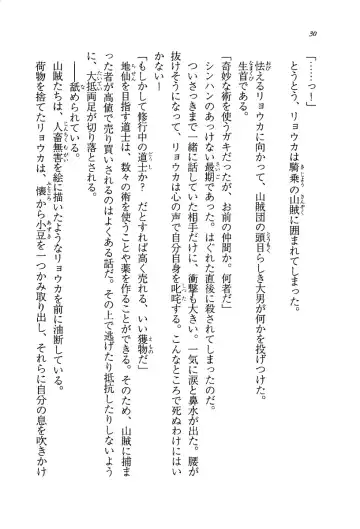 30
「……っ！」
とうとう、リョウカは騎乗の山賊に囲まれてしまった。
怯えるリョウカに向かって、山賊団の頭目らしき大男が何かを投げつけた。
生首である。
「奇妙な術を使うガキだったが、お前の仲間か。何者だ」
シンハンのあっけない最期であった。はぐれた直後に殺されたのだ。
ついさっきまで一緒に話していた相手だけに、衝撃も大きい。一気に涙と鼻水が出た。腰が
抜けそうになって、リョウカは心の声で自分自身を叱咤する。こんなところで死ぬわけにはい
かない！
「もしかして修行中の道士か？　だとすれば高く売れる、いい獲物だ」
地仙を目指す道士は、数々の術を使うことや薬を作ることができる。そのため、山賊に捕ま
った者が高値で売り買いされるのはよくある話だ。その上で逃げたり抵抗したりしないよう
に、大抵両足が切り落とされる。
――舐められている。
山賊たちは、人畜無害を絵に描いたようなリョウカを前に油断している。
荷物を捨てたリョウカは、懐から小豆を一つかみ取り出し、それらに自分の息を吹きかけ